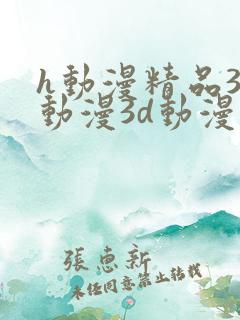 h動漫精品3
動漫3d動漫
張惠新
未經同意禁止轉載